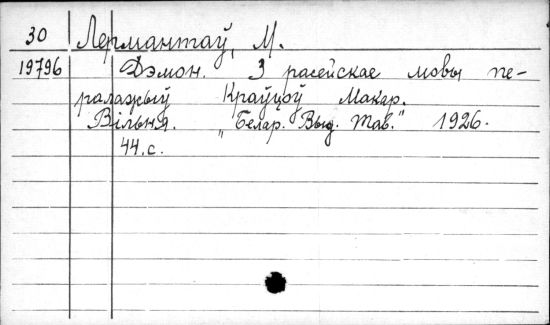 30 Лермантаў, М.
19796 Дэмон. З расейскае мовы пе-
ралажыў Краўцоў Макар.
Вільня. „Белар. Выд. Тав." 1926.
44.с.